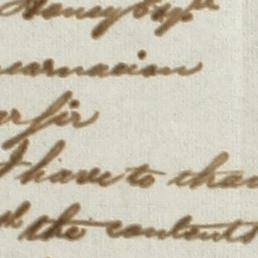 Honey Esqre
ncarnacion
ar Sir
I have to than
the contents